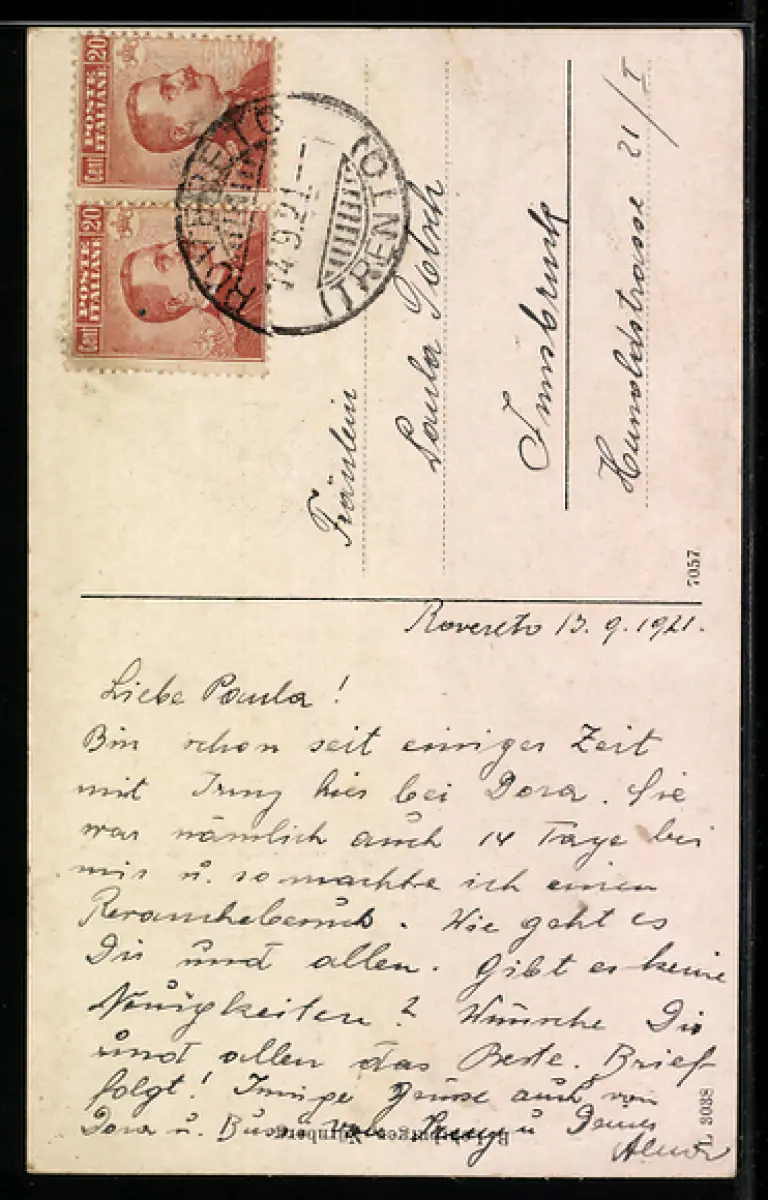 Cent POSTE ITALIANE 20
Cent POSTE ITALIANE 20
ROVERETO
14.9.21.
(TRENTO)
Fräulein
Paula
Innsbruck
Hunoldstrasse 21/I
7057
Rovereto 13.9.1921.
Liebe Paula!
Bin schon seit einiger Zeit
mit hier bei Dora. Sie
war nämlich auch 14 Tage bei
mir u. so machte ich einen
Revanchebesuch. Wie geht es
Dir und allen. Gibt es keine
Neuigkeiten? Wünsche Dir
und allen das Beste. Brief
folgt! Innige Grüsse auch von
Dora u. u. Deiner
L 3038